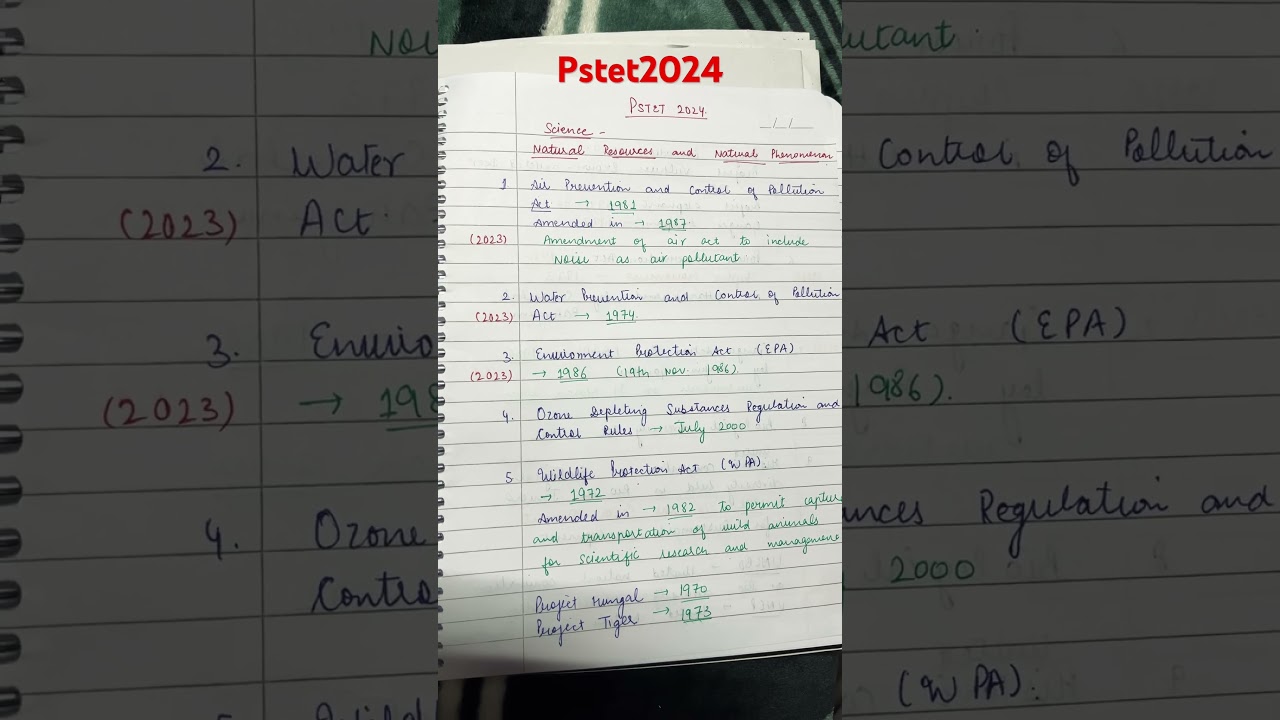 Pstet2024
PSTET 2024.
_/_/_
Science -
Natural Resources and Natural Phenomenon
1 Air Prevention and Control of Pollution
Act → 1981
Amended in → 1987
(2023) Amendment of air act to include
Noise as air pollutant
2. Water Prevention and Control of Pollution
(2023) Act → 1974
3. Environment Protection Act (EPA)
(2023) → 1986 (19th Nov. 1986).
4. Ozone Depleting Substances Regulation and
Control Rules → July 2000
5 Wildlife Protection Act (WPA).
→ 1972
Amended in → 1982 to permit capture
and transportation of wild animals
for scientific research and management
Project Hungal → 1970
Project Tiger → 1973